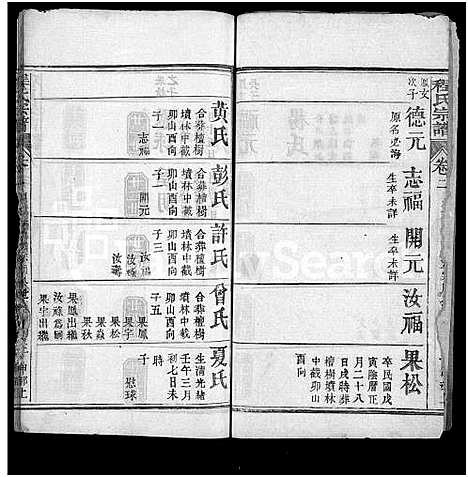 程氏宗譜
卷二
愿文
次子
德元
原名必海
志福
生卒未詳
開元
生卒未詳
汝福
果松
卒民國戊
寅陰曆正
月二十八
日戌時葬
檀樹墳林
中截卯山
酉向
黃氏
合葬檀樹
墳林中截
卯山酉向
子一
志福
彭氏
合葬檀樹
墳林中截
卯山酉向
子一
開元
許氏
合葬檀樹
墳林中截
卯山酉向
子三
汝福
汝壽
曾氏
合葬檀樹
墳林中截
卯山酉向
子五
果鳳
果宇
果松
果森
果秋
果鳳出繼
汝綠為嗣
果宇出繼
夏氏
生清光緒
壬午三月
初七日未
時
子
慰球